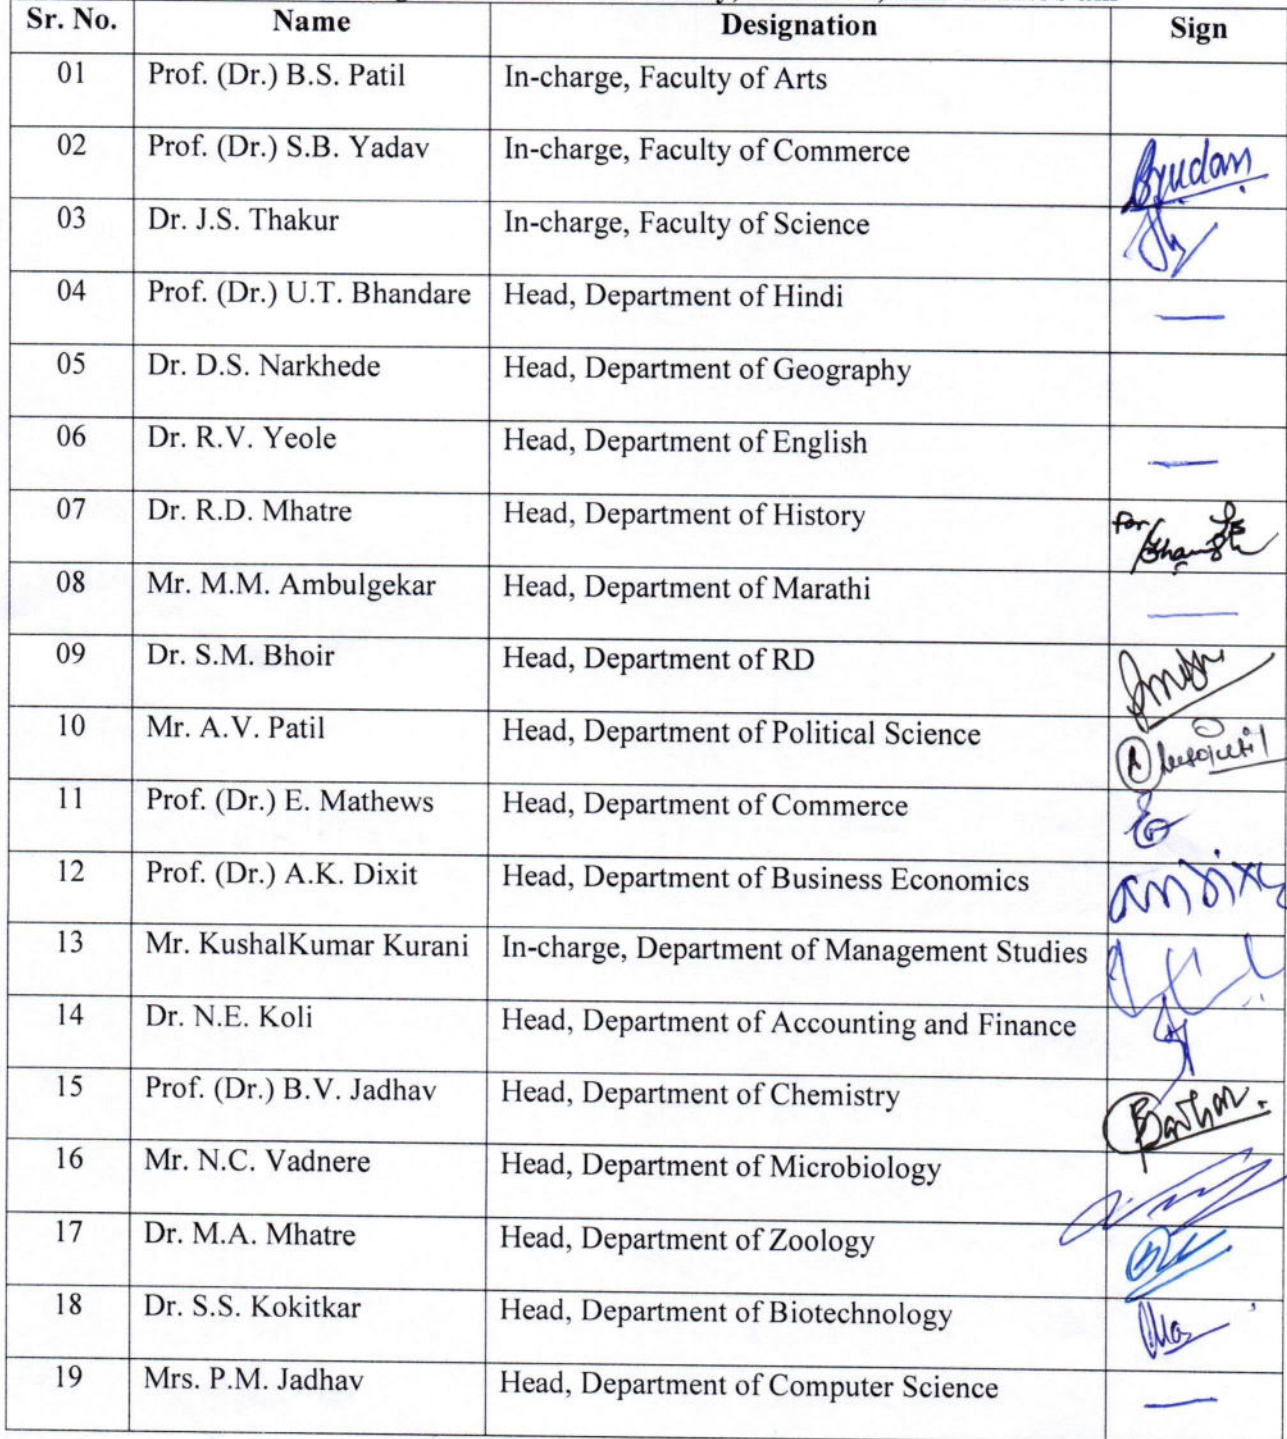 Sr. No. Name Designation Sign
01 Prof. (Dr.) B.S. Patil In-charge, Faculty of Arts
02 Prof. (Dr.) S.B. Yadav In-charge, Faculty of Commerce
03 Dr. J.S. Thakur In-charge, Faculty of Science
04 Prof. (Dr.) U.T. Bhandare Head, Department of Hindi —
05 Dr. D.S. Narkhede Head, Department of Geography
06 Dr. R.V. Yeole Head, Department of English —
07 Dr. R.D. Mhatre Head, Department of History for
08 Mr. M.M. Ambulgekar Head, Department of Marathi —
09 Dr. S.M. Bhoir Head, Department of RD
10 Mr. A.V. Patil Head, Department of Political Science
11 Prof. (Dr.) E. Mathews Head, Department of Commerce
12 Prof. (Dr.) A.K. Dixit Head, Department of Business Economics
13 Mr. KushalKumar Kurani In-charge, Department of Management Studies
14 Dr. N.E. Koli Head, Department of Accounting and Finance
15 Prof. (Dr.) B.V. Jadhav Head, Department of Chemistry
16 Mr. N.C. Vadnere Head, Department of Microbiology
17 Dr. M.A. Mhatre Head, Department of Zoology
18 Dr. S.S. Kokitkar Head, Department of Biotechnology
19 Mrs. P.M. Jadhav Head, Department of Computer Science —